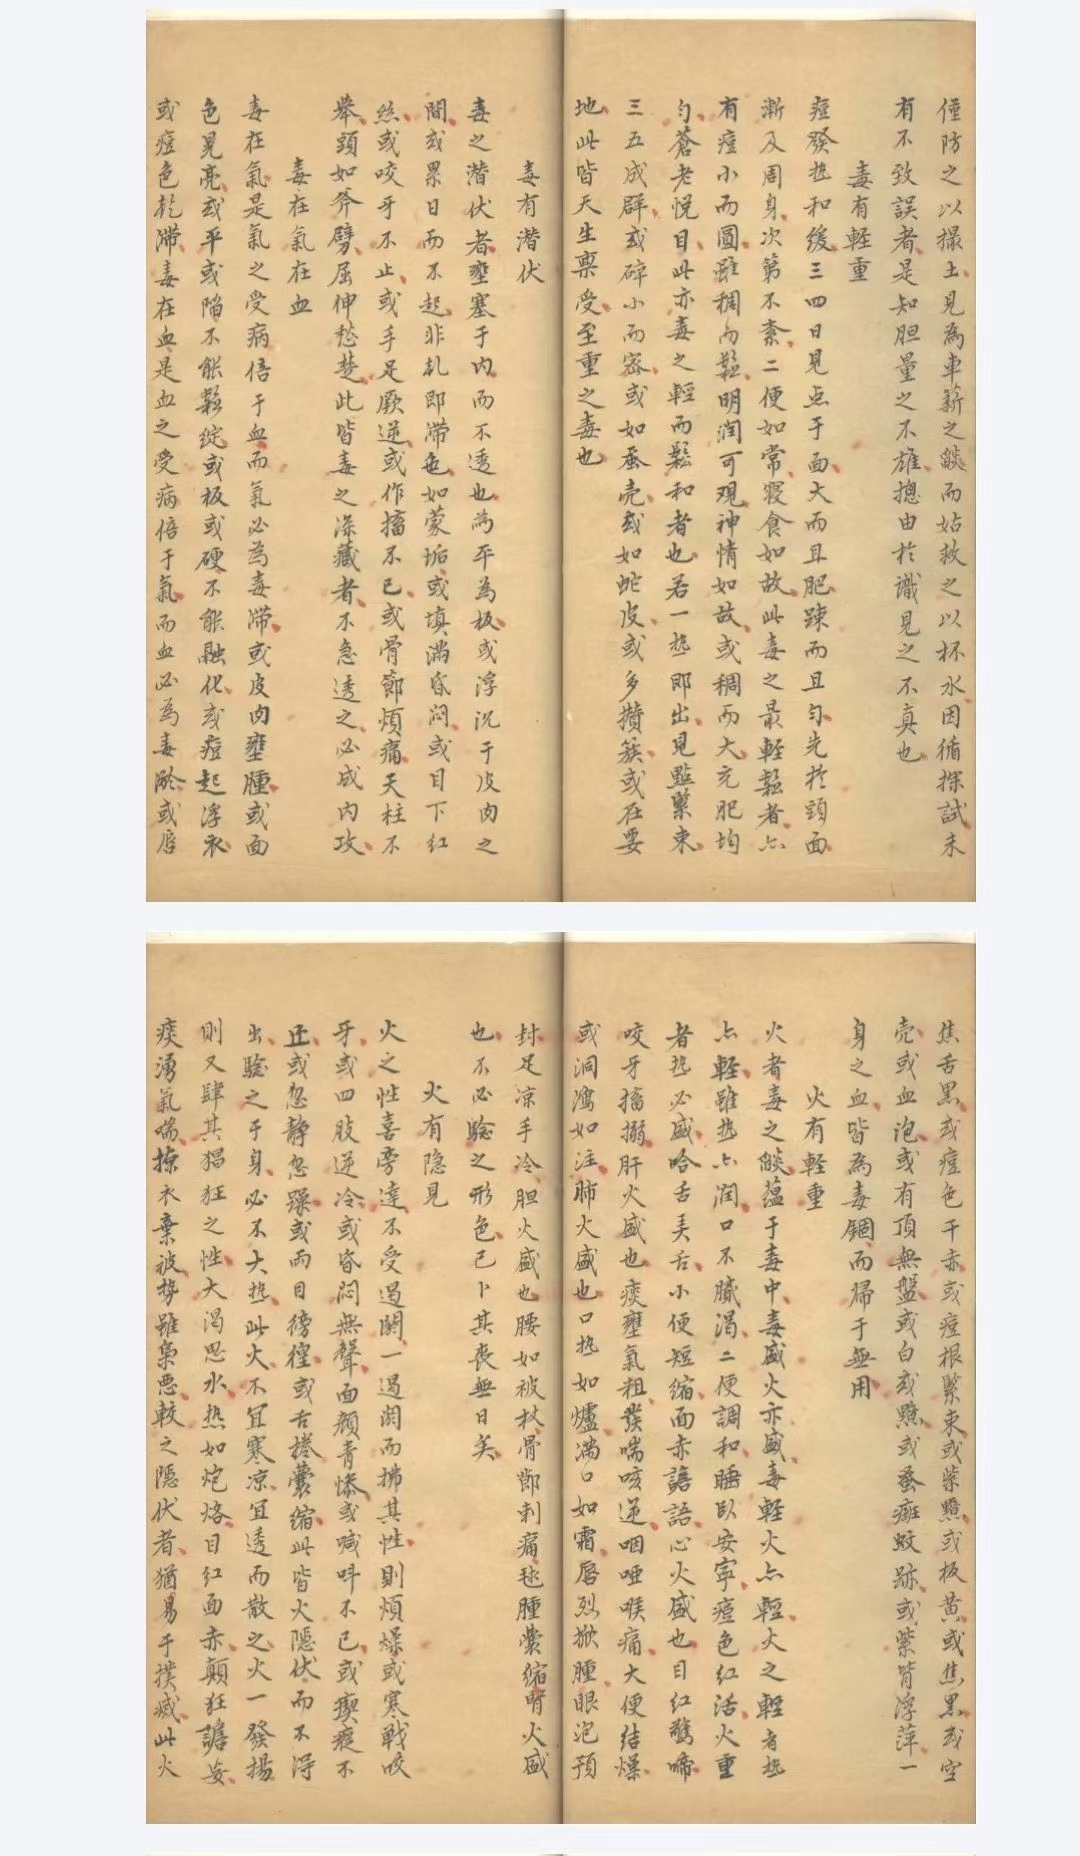 僅防之以撮土見為車薪之燄而姑救之以杯水因循探試未
有不致誤者是知胆量之不雄摠由扵識見之不真也
毒有輕重
痘發热和緩三四日見点于面大而且肥踈而且勻先扵頭面
漸及周身次第不紊二便如常寝食如故此毒之最輕鬆者亦
有痘小而圓雖稠而鬆明润可观神情如故或稠而大充肥均
勻蒼老悦目此亦毒之輕而鬆和者也若一热即出見點緊束
三五成群或碎小而密或如蚕壳或如蛇皮或多攢簇或在要
地此皆天生禀受至重之毒也
毒有潜伏
毒之潜伏者壅塞于内而不透也為平為板或浮沉于皮肉之
間或累日而不起非乱即滞色如蒙垢或填满昏闷或目下红
丝或咬牙不止或手足厥逆或作搐不已或骨節煩痛天柱不
举頭如斧劈屈伸愁楚此皆毒之深藏者不急透之必成内攻
毒在氣在血
毒在氣是氣之受病倍于血而氣必為毒滞或皮肉壅腫或面
色晃亮或平或陷不能鬆绽或板或硬不能融化或痘起浮衣
或痘色乾滞毒在血是血之受病倍于氣而血必為毒瘀或唇
焦舌黑或痘色干赤或痘根緊束或紫黯或板黄或焦黑或空
壳或血泡或有頂無盤或白或黯或蚤斑蚊跡或紫背浮萍一
身之血皆為毒錮而歸于無用
火有輕重
火者毒之燄蕴于毒中毒盛火亦盛毒輕火亦輕火之輕者热
亦輕雖热亦润口不腻渴二便調和睡卧安寕痘色红活火重
者热必盛哈舌弄舌小便短缩面赤譫語心火盛也目红驚啼
咬牙搐搦肝火盛也痰壅氣粗發喘咳逆咽哑喉痛大便结燥
或洞瀉如注肺火盛也口热如爐满口如霜唇烈掀腫眼泡預
封足凉手冷胆火盛也腰如被杖骨節刺痛毬腫囊缩腎火盛
也不必騐之形色已卜其丧無日矣
火有隐見
火之性喜旁達不受遏閼一遏閼而拂其性則煩燥或寒戰咬
牙或四肢逆冷或昏闷無聲面颜青惨或喊呌不已或瘈瘲不
止或忽静忽躁或两目徬徨或舌捲囊缩此皆火隐伏而不得
出騐之于身必不大热此火不宜寒凉宜透而散之火一發揚
則又肆其猖狂之性大渴思水热如炮烙目红面赤顛狂譫妄
痰湧氣喘撩衣棄被势雖枭恶較之隐伏者猶易于撲滅此火